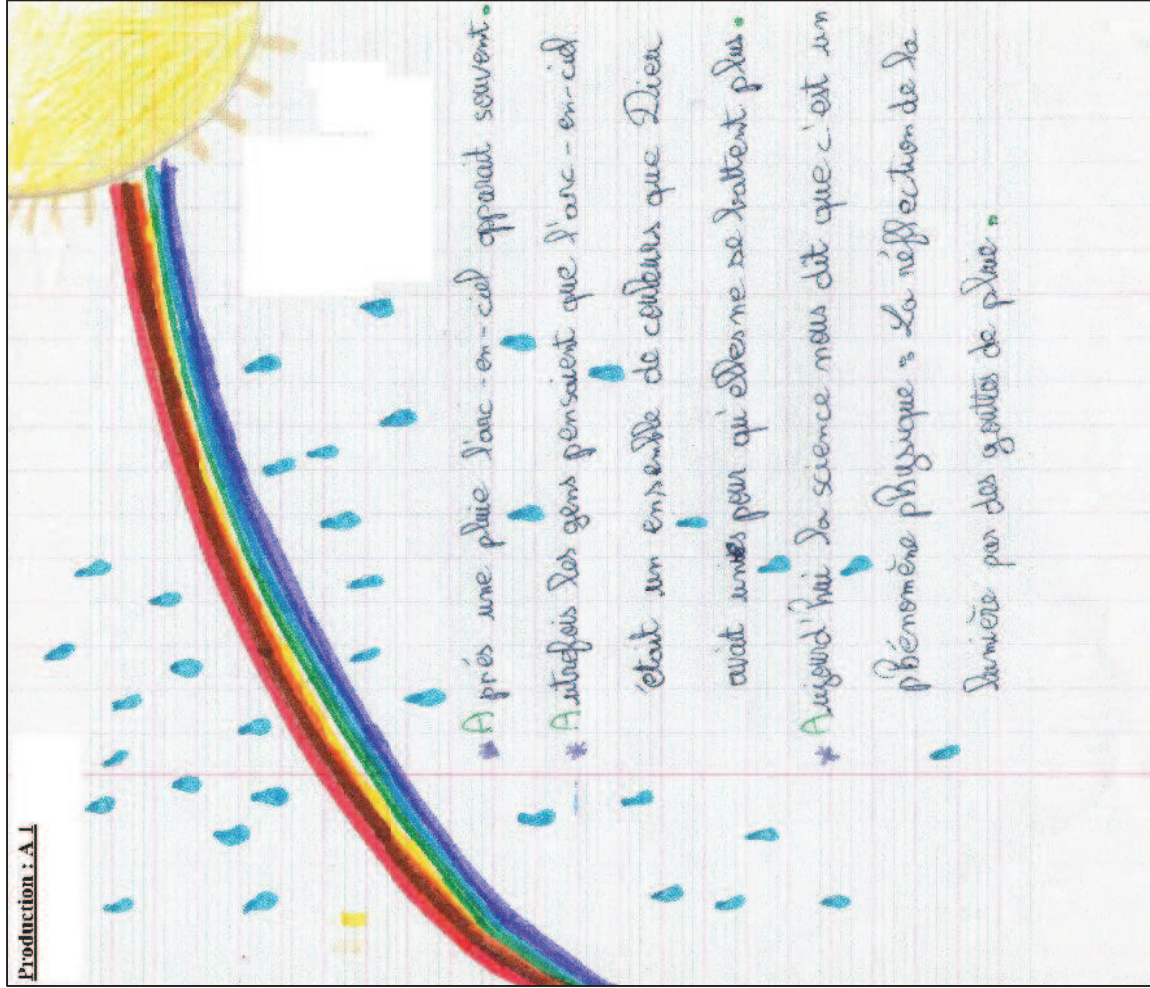 Production : A 1
* Aprés une pluie l'arc-en-ciel apparait souvent.
* Autrefois les gens pensaient que l'arc-en-ciel
était un ensenble de couleurs que Dieu
avait unies pour qu'elles ne se battent plus.
* Aujourd'hui la science nous dit que c'est un
phénomène physique : La réfflection de la
lumière par des gouttes de pluie.